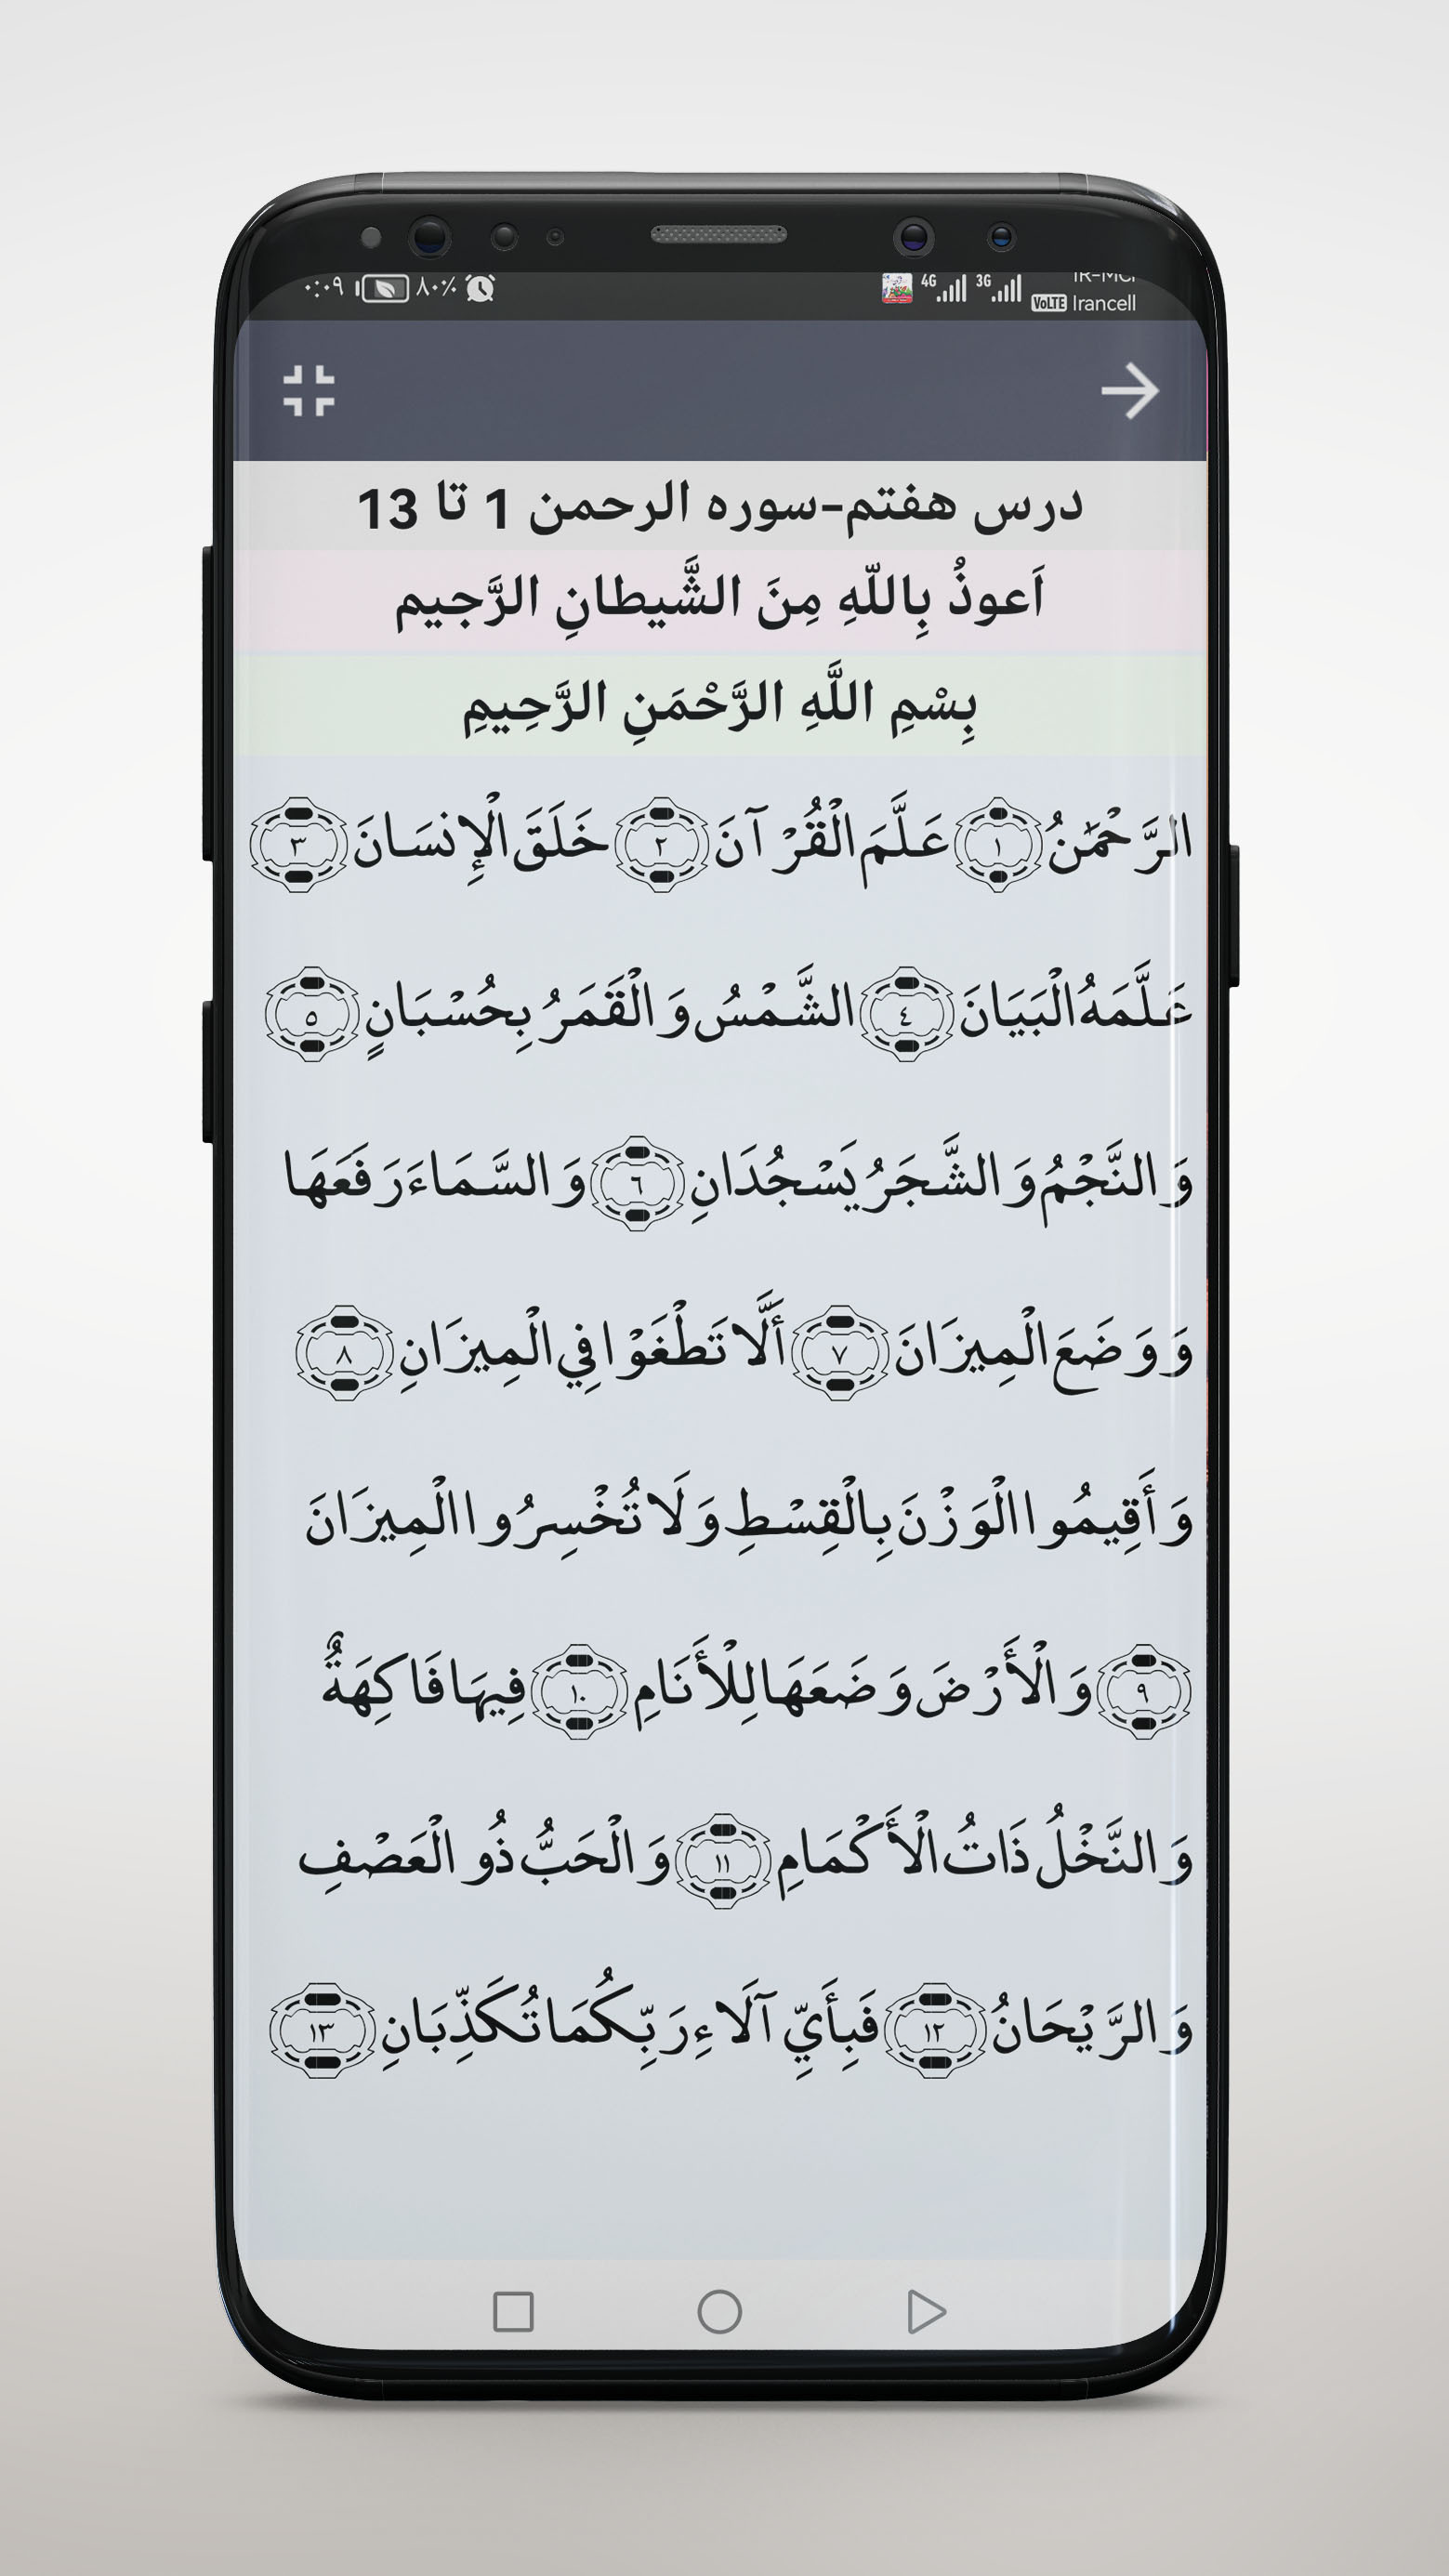 ۰:۰۹ ۸۰٪ 4G 3G IR-MCI
VoLTE Irancell
درس هفتم-سوره الرحمن 1 تا 13
اَعوذُ بِاللّهِ مِنَ الشَّیطانِ الرَّجیم
بِسْمِ اللَّهِ الرَّحْمَنِ الرَّحِيمِ
الرَّحْمَٰنُ ١ عَلَّمَ الْقُرْآنَ ٢ خَلَقَ الْإِنسَانَ ٣
عَلَّمَهُ الْبَيَانَ ٤ الشَّمْسُ وَالْقَمَرُ بِحُسْبَانٍ ٥
وَالنَّجْمُ وَالشَّجَرُ يَسْجُدَانِ ٦ وَالسَّمَاءَ رَفَعَهَا
وَوَضَعَ الْمِيزَانَ ٧ أَلَّا تَطْغَوْا فِي الْمِيزَانِ ٨
وَأَقِيمُوا الْوَزْنَ بِالْقِسْطِ وَلَا تُخْسِرُوا الْمِيزَانَ
٩ وَالْأَرْضَ وَضَعَهَا لِلْأَنَامِ ١٠ فِيهَا فَاكِهَةٌ
وَالنَّخْلُ ذَاتُ الْأَكْمَامِ ١١ وَالْحَبُّ ذُو الْعَصْفِ
وَالرَّيْحَانُ ١٢ فَبِأَيِّ آلَاءِ رَبِّكُمَا تُكَذِّبَانِ ١٣